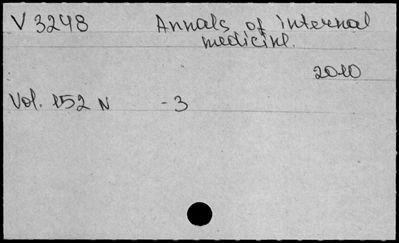 V 3248 Annals of internal
medicine.
2010
Vol. 152 N -3